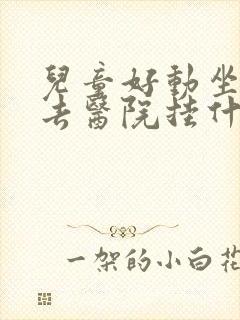 兒童好動坐
去醫院挂什
一架的小白花